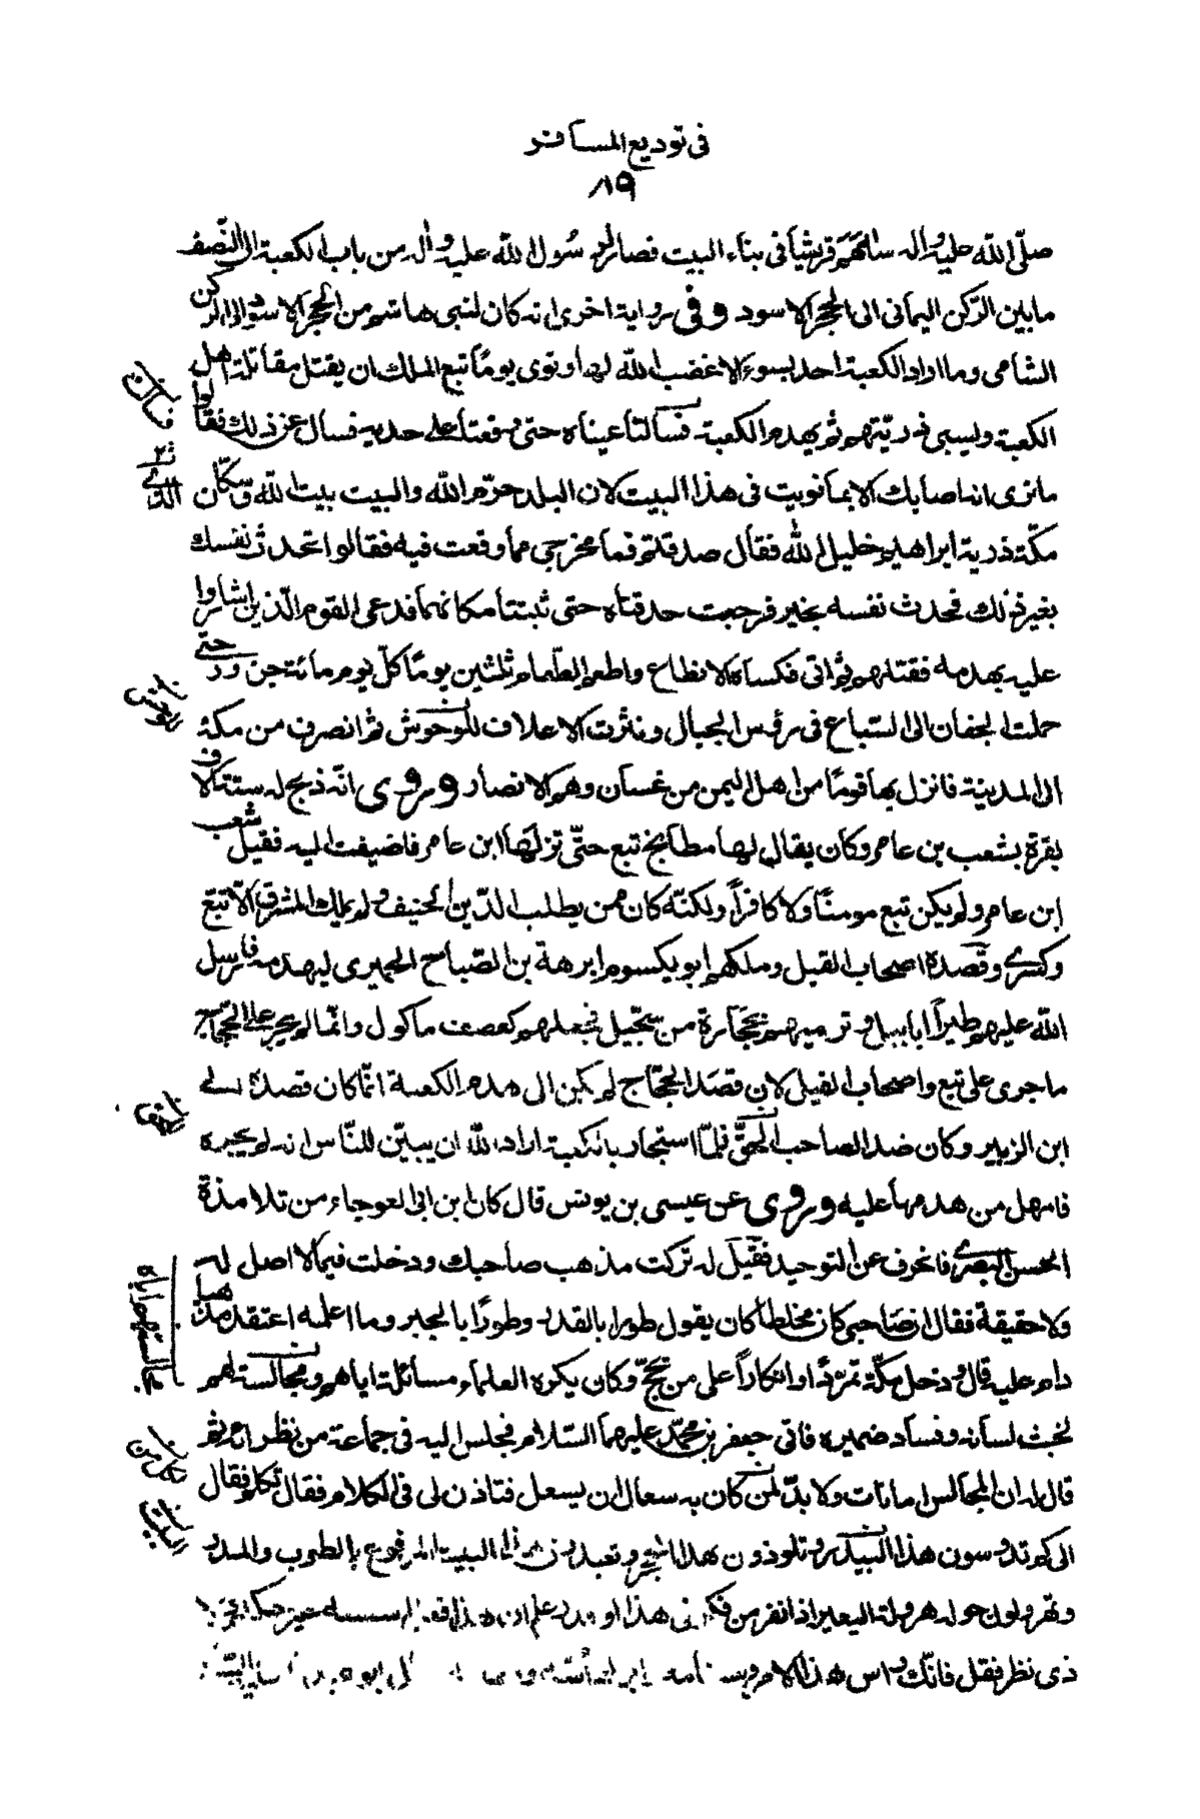 فى توديع المسافر
٨٩
صلّى الله عليه وآله ساهم قريشا فى بناء البيت فصار لرسول الله عليه وآله من باب الكعبة الى النّصف
ما بين الرّكن اليمانى الى الحجر الاسود وفى رواية اخرى انه كان لبنى هاشم من الحجر الاسود الى الركن
الشامى وما اراد الكعبة احد بسوء الا غضب الله لها ونوى يومًا تبع الملك ان يقتل مقاتلة اهل
الكعبة ويسبى ذريّتهم ثم يهدم الكعبة فسالتا عيناه حتى وقعتا على خديه فسال عن ذلك فقالوا
ما نرى انه اصابك الا بما نويت فى هذا البيت لان البلد حرم الله والبيت بيت الله وسكّان
مكّة ذرية ابراهيم خليل الله فقال صدقتم فما مخرجى مما وقعت فيه فقالوا تحدث نفسك
بغير ذلك فحدث نفسه بخير فرجعت حدقتاه حتى ثبتتا مكانهما فدعى القوم الّذين اشاروا
عليه بهدمه فقتلهم ثم اتى فكساه الانطاع واطعم الطّعام ثلثين يومًا كلّ يوم مائة جزور حتّى
حملت الجفان الى السّباع فى رؤس الجبال ونثرت الاعلاف للوحوش ثم انصرف من مكة
الى المدينة فانزل بها قومًا من اهل اليمن من غسان وهم الانصار وروى انّه ذبح له ستة آلاف
بقرة بشعب بن عامر وكان يقال لها مطابخ تبع حتّى نزلها ابن عامر فاضيفت اليه فقيل شعب
ابن عامر ولم يكن تبع مومنًا ولا كافراً ولكنّه كان ممن يطلب الدّين الحنيف ولم يملك المشرق الّا تبّع
وكسرى وقصده اصحاب الفيل وملكهم ابو يكسوم ابرهة بن الصّباح الحميرى ليهدمه فارسل
الله عليهم طيراً ابابيل ترميهم بحجارة من سجّيل فجعلهم كعصف ماكول وانّما لم يجر على الحجّاج
ما جرى على تبع واصحاب الفيل لان قصد الحجّاج لم يكن الى هدم الكعبة انّما كان قصده الى
ابن الزبير وكان ضدا لصاحب الحقّ فلمّا استجار بالكعبة اراد الله ان يبيّن للنّاس انه لم يجره
فامهل من هدمها عليه وروى عن عيسى بن يونس قال كان ابن ابى العوجاء من تلامذة
الحسن البصرى فانحرف عن التوحيد فقيل له تركت مذهب صاحبك ودخلت فيما لا اصل له
ولا حقيقة فقال ان صاحبى كان مخلطا كان يقول طورا بالقدر وطورًا بالجبر وما اعلمه اعتقد مذهبا
دام عليه قال ودخل مكّة تمردًا وانكاراً على من يحجّ وكان يكره العلماء مسائلته اياهم ومجالسته لهم
لخبث لسانه وفساد ضميره فاتى جعفر بن محمّد عليهما السّلام فجلس اليه فى جماعة من نظرائه ثم
قال له ان المجالس امانات ولا بدّ لمن كان به سعال ان يسعل فتاذن لى فى الكلام فقال تكلم فقال
الى كم تدوسون هذا البيدر وتلوذون بهذا الحجر وتعبدون هذا البيت المرفوع بالطوب والمدر
وتهرولون حوله هرولة البعير اذا نفر من فكر فى هذا او قدر علم ان هذا فعل اسسه غير حكيم
ذى نظر فقل فانّك راس هذا الامر وسنامه